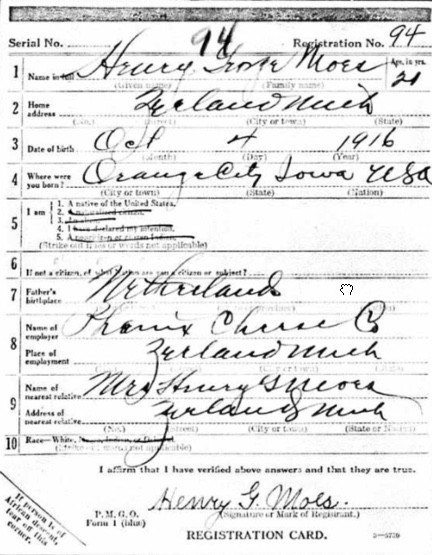 94
Serial No. Registration No. 94
1 Name in full Henry George Moes Age, in yrs. 21
(Given name) (Family name)
2 Home address Zeeland Mich
(No.) (Street) (City or town) (State)
3 Date of birth Oct 4 1916
(Month) (Day) (Year)
4 Where were you born? Orange City Iowa USA
(City or town) (State) (Nation)
5 I am
1. A native of the United States.
2. A naturalized citizen.
3. An alien.
4. I have declared my intention.
5. A noncitizen or citizen Indian.
(Strike out lines or words not applicable)
6 If not a citizen, of what Nation are you a citizen or subject?
7 Father's birthplace Netherlands
8 Name of employer Phenix Cheese Co
Place of employment Zeeland Mich
9 Name of nearest relative Mrs Henry G Moes
Address of nearest relative Zeeland Mich
(No.) (Street) (City or town) (State or Nation)
10 Race—White,
(Strike out words not applicable)
I affirm that I have verified above answers and that they are true.
Henry G. Moes.
P. M. G. O.
Form 1 (blue) (Signature or Mark of Registrant.)
REGISTRATION CARD.
If person is of
African descent,
tear off this
corner.